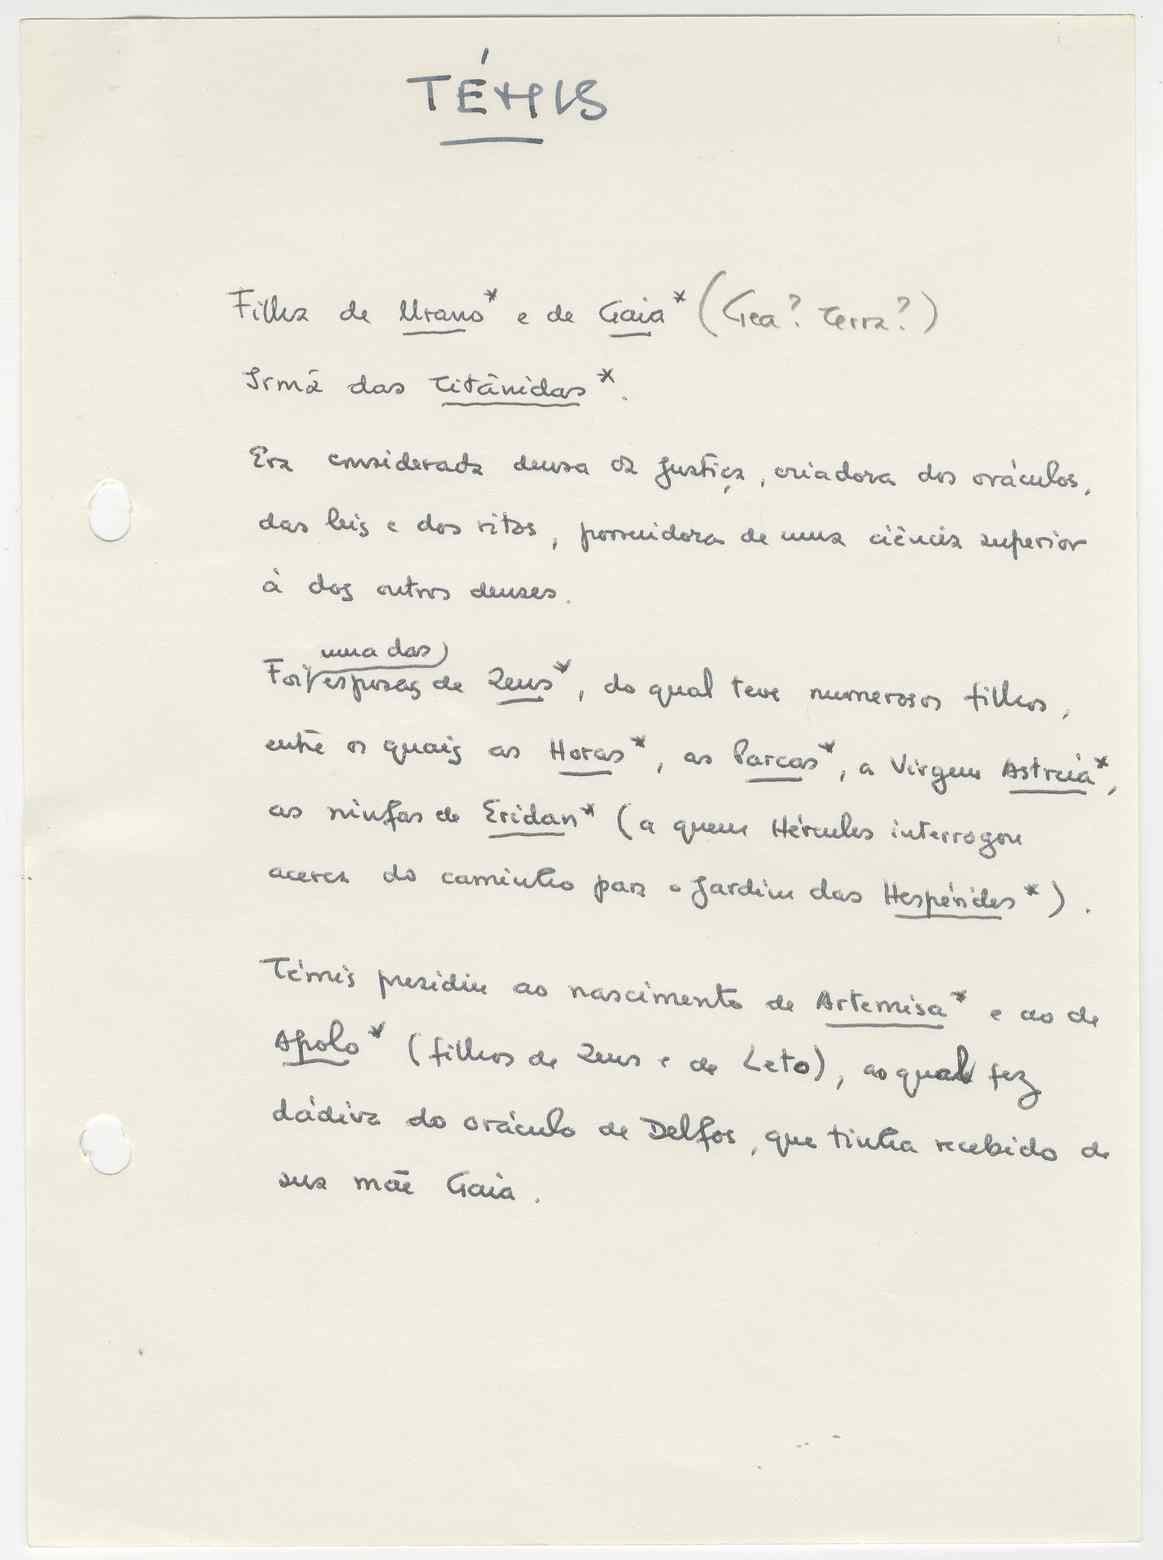 TÉMIS
Filha de Urano* e de Gaia* (Gea? Terra?)
Irmã das Titânidas*.
Era considerada deusa da Justiça, criadora dos oráculos,
das leis e dos ritos, possuidora de uma ciência superior
à dos outros deuses.
uma das
Foi esposas de Zeus*, do qual teve numerosos filhos,
entre os quais as Horas*, as Parcas*, a Virgem Astreia*,
as ninfas de Eridan* (a quem Hércules interrogou
acerca do caminho para o Jardim das Hespérides*).
Témis presidiu ao nascimento de Artemisa* e ao de
Apolo* (filhos de Zeus e de Leto), ao qual fez
dádiva do oráculo de Delfos, que tinha recebido de
sua mãe Gaia.